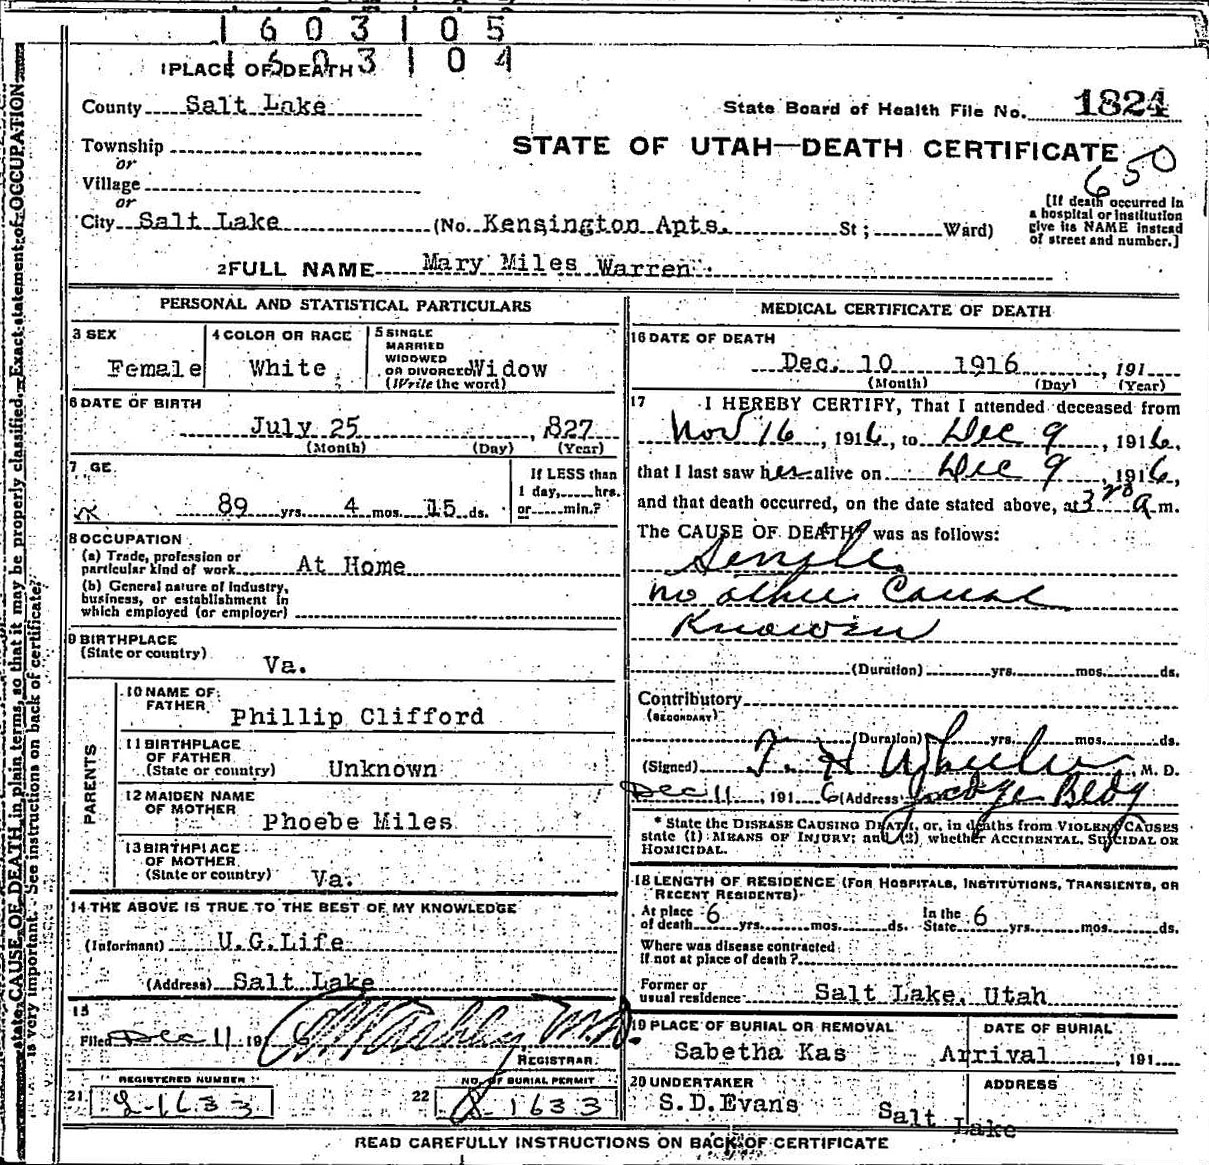 1603105
1603104
1 PLACE OF DEATH
County Salt Lake
State Board of Health File No. 1824
Township
or
Village
or
STATE OF UTAH—DEATH CERTIFICATE
650
City Salt Lake (No. Kensington Apts. St; Ward)
[If death occurred in
a hospital or institution
give its NAME instead
of street and number.]
2 FULL NAME Mary Miles Warren
PERSONAL AND STATISTICAL PARTICULARS
3 SEX
Female
4 COLOR OR RACE
White
5 SINGLE
MARRIED
WIDOWED
OR DIVORCED Widow
(Write the word)
6 DATE OF BIRTH
July 25, 827
(Month) (Day) (Year)
7 GE
89 yrs. 4 mos. 15 ds.
If LESS than
1 day, hrs.
or min.?
8 OCCUPATION
(a) Trade, profession or
particular kind of work At Home
(b) General nature of industry,
business, or establishment in
which employed (or employer)
9 BIRTHPLACE
(State or country)
Va.
PARENTS
10 NAME OF
FATHER
Phillip Clifford
11 BIRTHPLACE
OF FATHER
(State or country) Unknown
12 MAIDEN NAME
OF MOTHER
Phoebe Miles
13 BIRTHPLACE
OF MOTHER
(State or country) Va.
14 THE ABOVE IS TRUE TO THE BEST OF MY KNOWLEDGE
(Informant) U.G.Life
(Address) Salt Lake
15
Filed Dec 11 191 6
M.D.
REGISTRAR
REGISTERED NUMBER
21
1633
NO. OF BURIAL PERMIT
22
1633
MEDICAL CERTIFICATE OF DEATH
16 DATE OF DEATH
Dec. 10 1916, 191
(Month) (Day) (Year)
17 I HEREBY CERTIFY, That I attended deceased from
Nov 16, 1916, to Dec 9, 1916,
that I last saw her alive on Dec 9, 1916,
and that death occurred, on the date stated above, at 3 a m.
The CAUSE OF DEATH* was as follows:
Senile
no other Cause
Known
(Duration) yrs. mos. ds.
Contributory
(SECONDARY)
(Duration) yrs. mos. ds.
(Signed) T. H Wheeler M. D.
Dec 11, 191 6 (Address) Judge Bldg
* State the DISEASE CAUSING DEATH, or, in deaths from VIOLENT CAUSES
state (1) MEANS OF INJURY; and (2) whether ACCIDENTAL, SUICIDAL OR
HOMICIDAL.
18 LENGTH OF RESIDENCE (FOR HOSPITALS, INSTITUTIONS, TRANSIENTS, OR
RECENT RESIDENTS)
At place
of death 6 yrs. mos. ds.
In the
State 6 yrs. mos. ds.
Where was disease contracted
If not at place of death?
Former or
usual residence Salt Lake, Utah
19 PLACE OF BURIAL OR REMOVAL
Sabetha Kas
DATE OF BURIAL
Arrival, 191
20 UNDERTAKER
S.D.Evans
ADDRESS
Salt Lake
READ CAREFULLY INSTRUCTIONS ON BACK OF CERTIFICATE
state CAUSE OF DEATH in plain terms, so that it may be properly classified. Exact statement of OCCUPATION
is very important. See instructions on back of certificate.